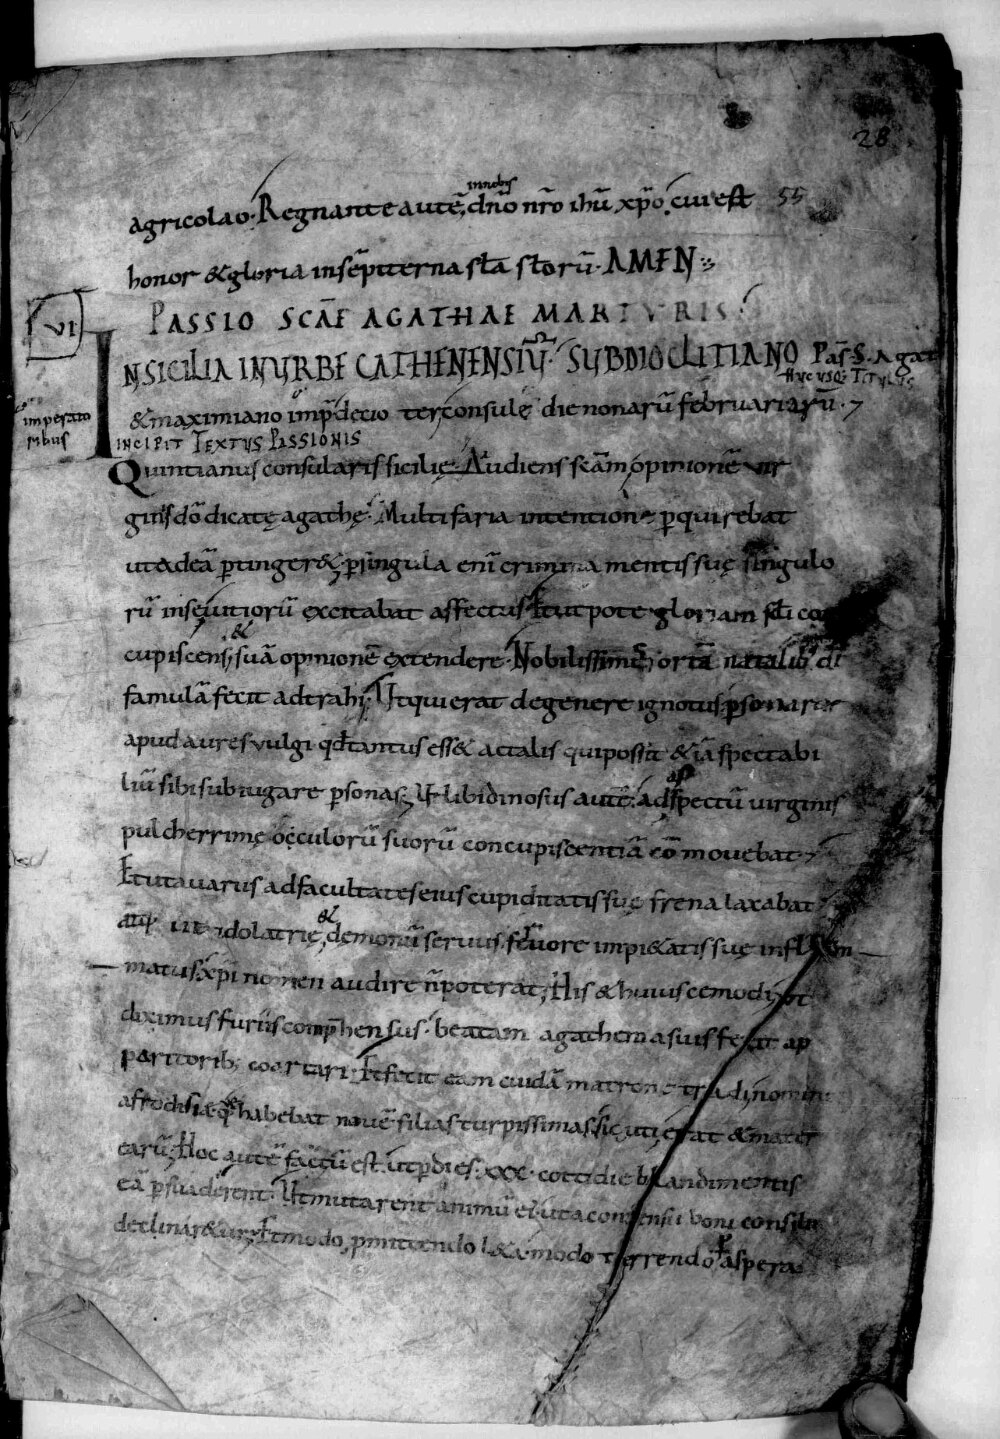 28
in nobis
agricolao. Regnante autē dn̄o nr̄o ihū xp̄o, cui est 55
honor & gloria in sēpiterna scl̄a scl̄orū. AMEN
VI
PASSIO SCĀE AGATHAE MARTYRIS
IN SICILIA IN URBE CATHENENSIŪ SUB DIOCLITIANO Pas̄. S. Agat
HUCUSQ; TITULUS
imperato
ribus
& maximiano imp̄ decio ter consulę die nonarū februariarū. 7
INCIPIT TEXTUS PASSIONIS
Quintianus consularis sicilię. Audiens scām opinionē vir
ginis dō dicatę agathę. Multifaria intentione p̄quirebat
ut ad eā p̄tinger&. p̄ singula enī crimina mentis suę singulo
rū in sę vitiorū excitabat affectus. Et ut pote gloriam scl̄i con
&
cupiscens, suā opinionē extendere. Nobilissimis ortā natalib; dī
famulā fecit adtrahi. Ut qui erat de genere ignotus p̄sonaret
apud aures vulgi qd̄ tantus ess& ac talis qui possit & iā spectabi
liū sibi subiugare p̄sonas. Ut libidinosus autē, ad aspectū virginis
pulcherrimę occulorū suorū concupiscentiā cōmovebat. 7
Et ut avarus ad facultates eius cupiditatis suę frena laxabat
&
ut idolatrię, demonū servus. fervore impi&atis suę inflam
matus xp̄i nomen audire n̄ poterat; His & huiuscemodi ut
diximus furiis comp̄hensus. beatam agathem a suis fecit ap
paritorib; coartari. Et fecit eam cuidā matrone tradi nomine
afrodisię quę habebat novē filias turpissimas, sic uti erat & mater
earū. Hoc autē factū est. ut p̄ dies. xxx. cottidie blandimentis
eā p̄suaderent. Ut mutarent animū ei. ut a consensu boni consilii
declinar&ur. Et modo, p̄mittendo l&a. modo terrendo & aspera